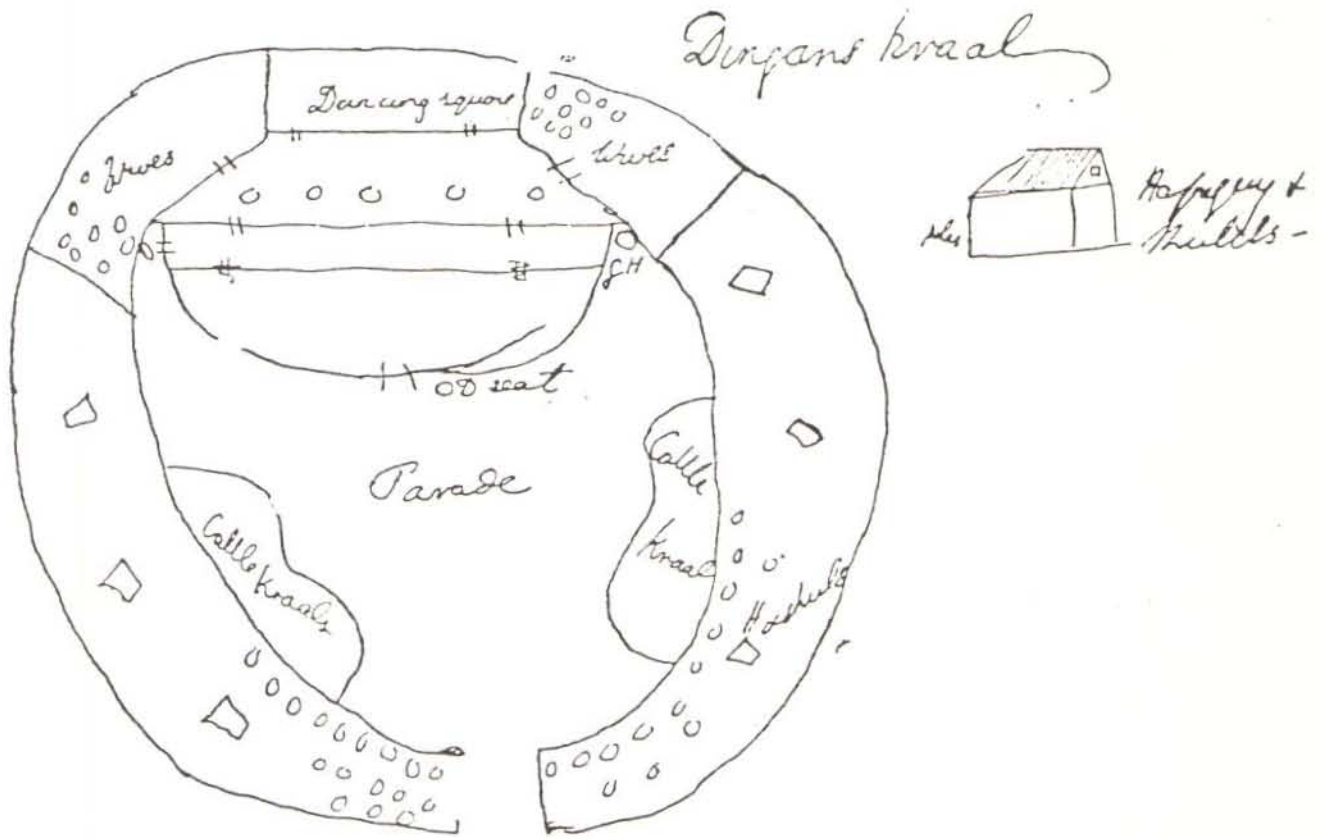 Dingans Kraal
Dancing square
Wives
Wives
GH
OD seat
Parade
Cattle
Kraal
Cattle
Kraals
&